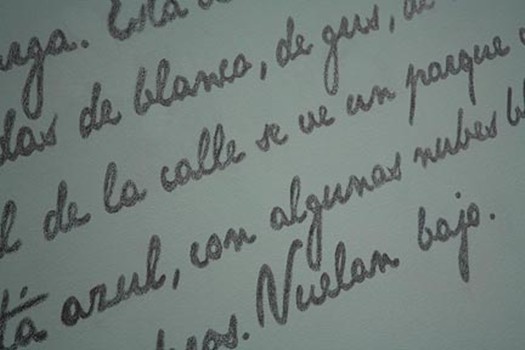 nga. Esta
das de blanco, de gris, de
l de la calle se ve un parque
tá azul, con algunas nubes bl
ros. Vuelan bajo.